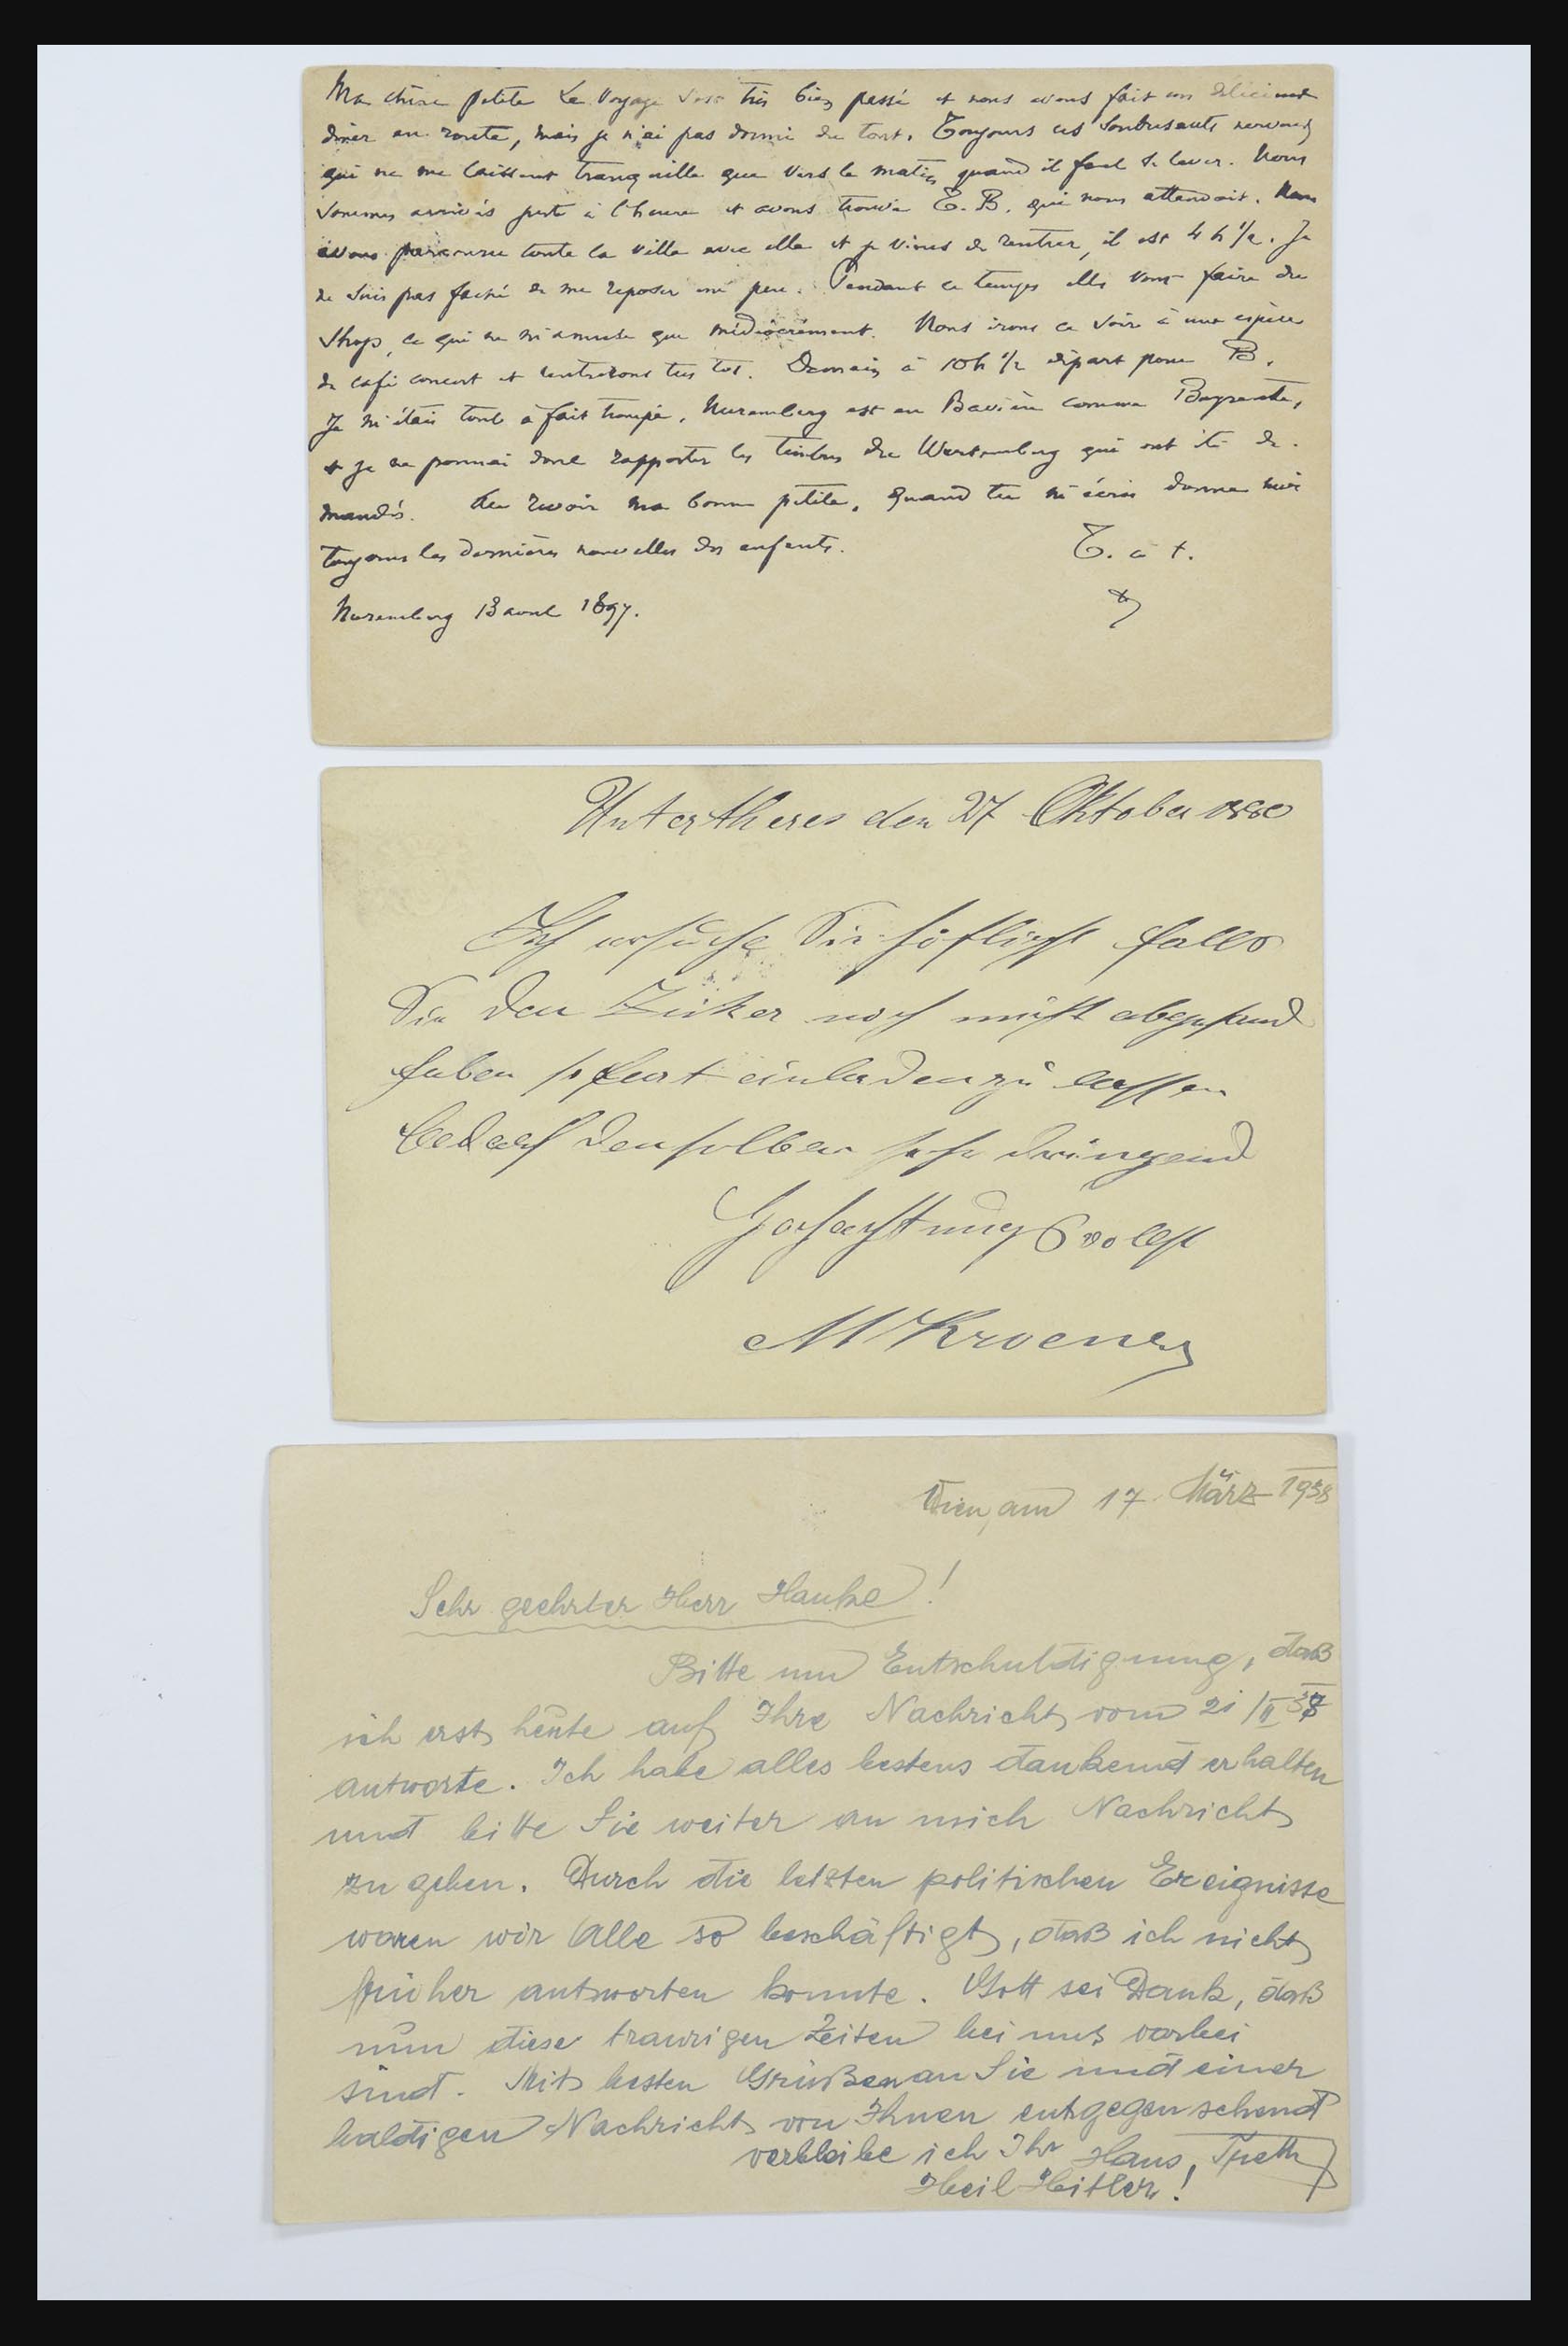 Ma chère petite Le voyage s'est très bien passé et nous avons fait un délicieux
dîner en route, mais je n'ai pas dormi du tout. Toujours ces soubresauts nerveux
qui ne me laissent tranquille que vers le matin quand il faut se lever. Nous
sommes arrivés juste à l'heure et avons trouvé E. B. qui nous attendait. Nous
avons parcouru toute la ville avec elle et je viens de rentrer, il est 4 h 1/2. Je
ne suis pas fâché de me reposer un peu. Pendant ce temps elles vont faire du
shop, ce qui ne m'amuse que médiocrement. Nous irons ce soir à une espèce
de café concert et rentrerons très tôt. Demain à 10h 1/2 départ pour B.
Je m'étais tout à fait trompé, Nuremberg est en Bavière comme Bayreuth,
et je ne pourrai donc rapporter les timbres du Wurtemberg qui ont été de-
mandés. Au revoir ma bonne petite, quand tu m'écris donne moi
toujours les dernières nouvelles des enfants. T. à t.
Nuremberg 13 avril 1897.
Untertheres den 27 Oktober 1880
Ich ersuche Sie höflichst falls
Sie den Zuker noch nicht abgesand
haben sofort einladen zu lassen
bedarf denselben sehr dringend
Hochachtungsvollst
M Kroener
Wien, am 17. März 1938
Sehr geehrter Herr Hanke!
Bitte um Entschuldigung, daß
ich erst heute auf Ihre Nachricht vom 21/II 38
antworte. Ich habe alles bestens dankend erhalten
und bitte Sie weiter an mich Nachricht
zu geben. Durch die letzten politischen Ereignisse
waren wir Alle so beschäftigt, daß ich nicht
früher antworten konnte. Gott sei Dank, daß
nun diese traurigen Zeiten bei uns vorbei
sind. Mit besten Grüßen an Sie und einer
baldigen Nachricht von Ihnen entgegensehend
verbleibe ich Ihr Hans
Heil Hitler!